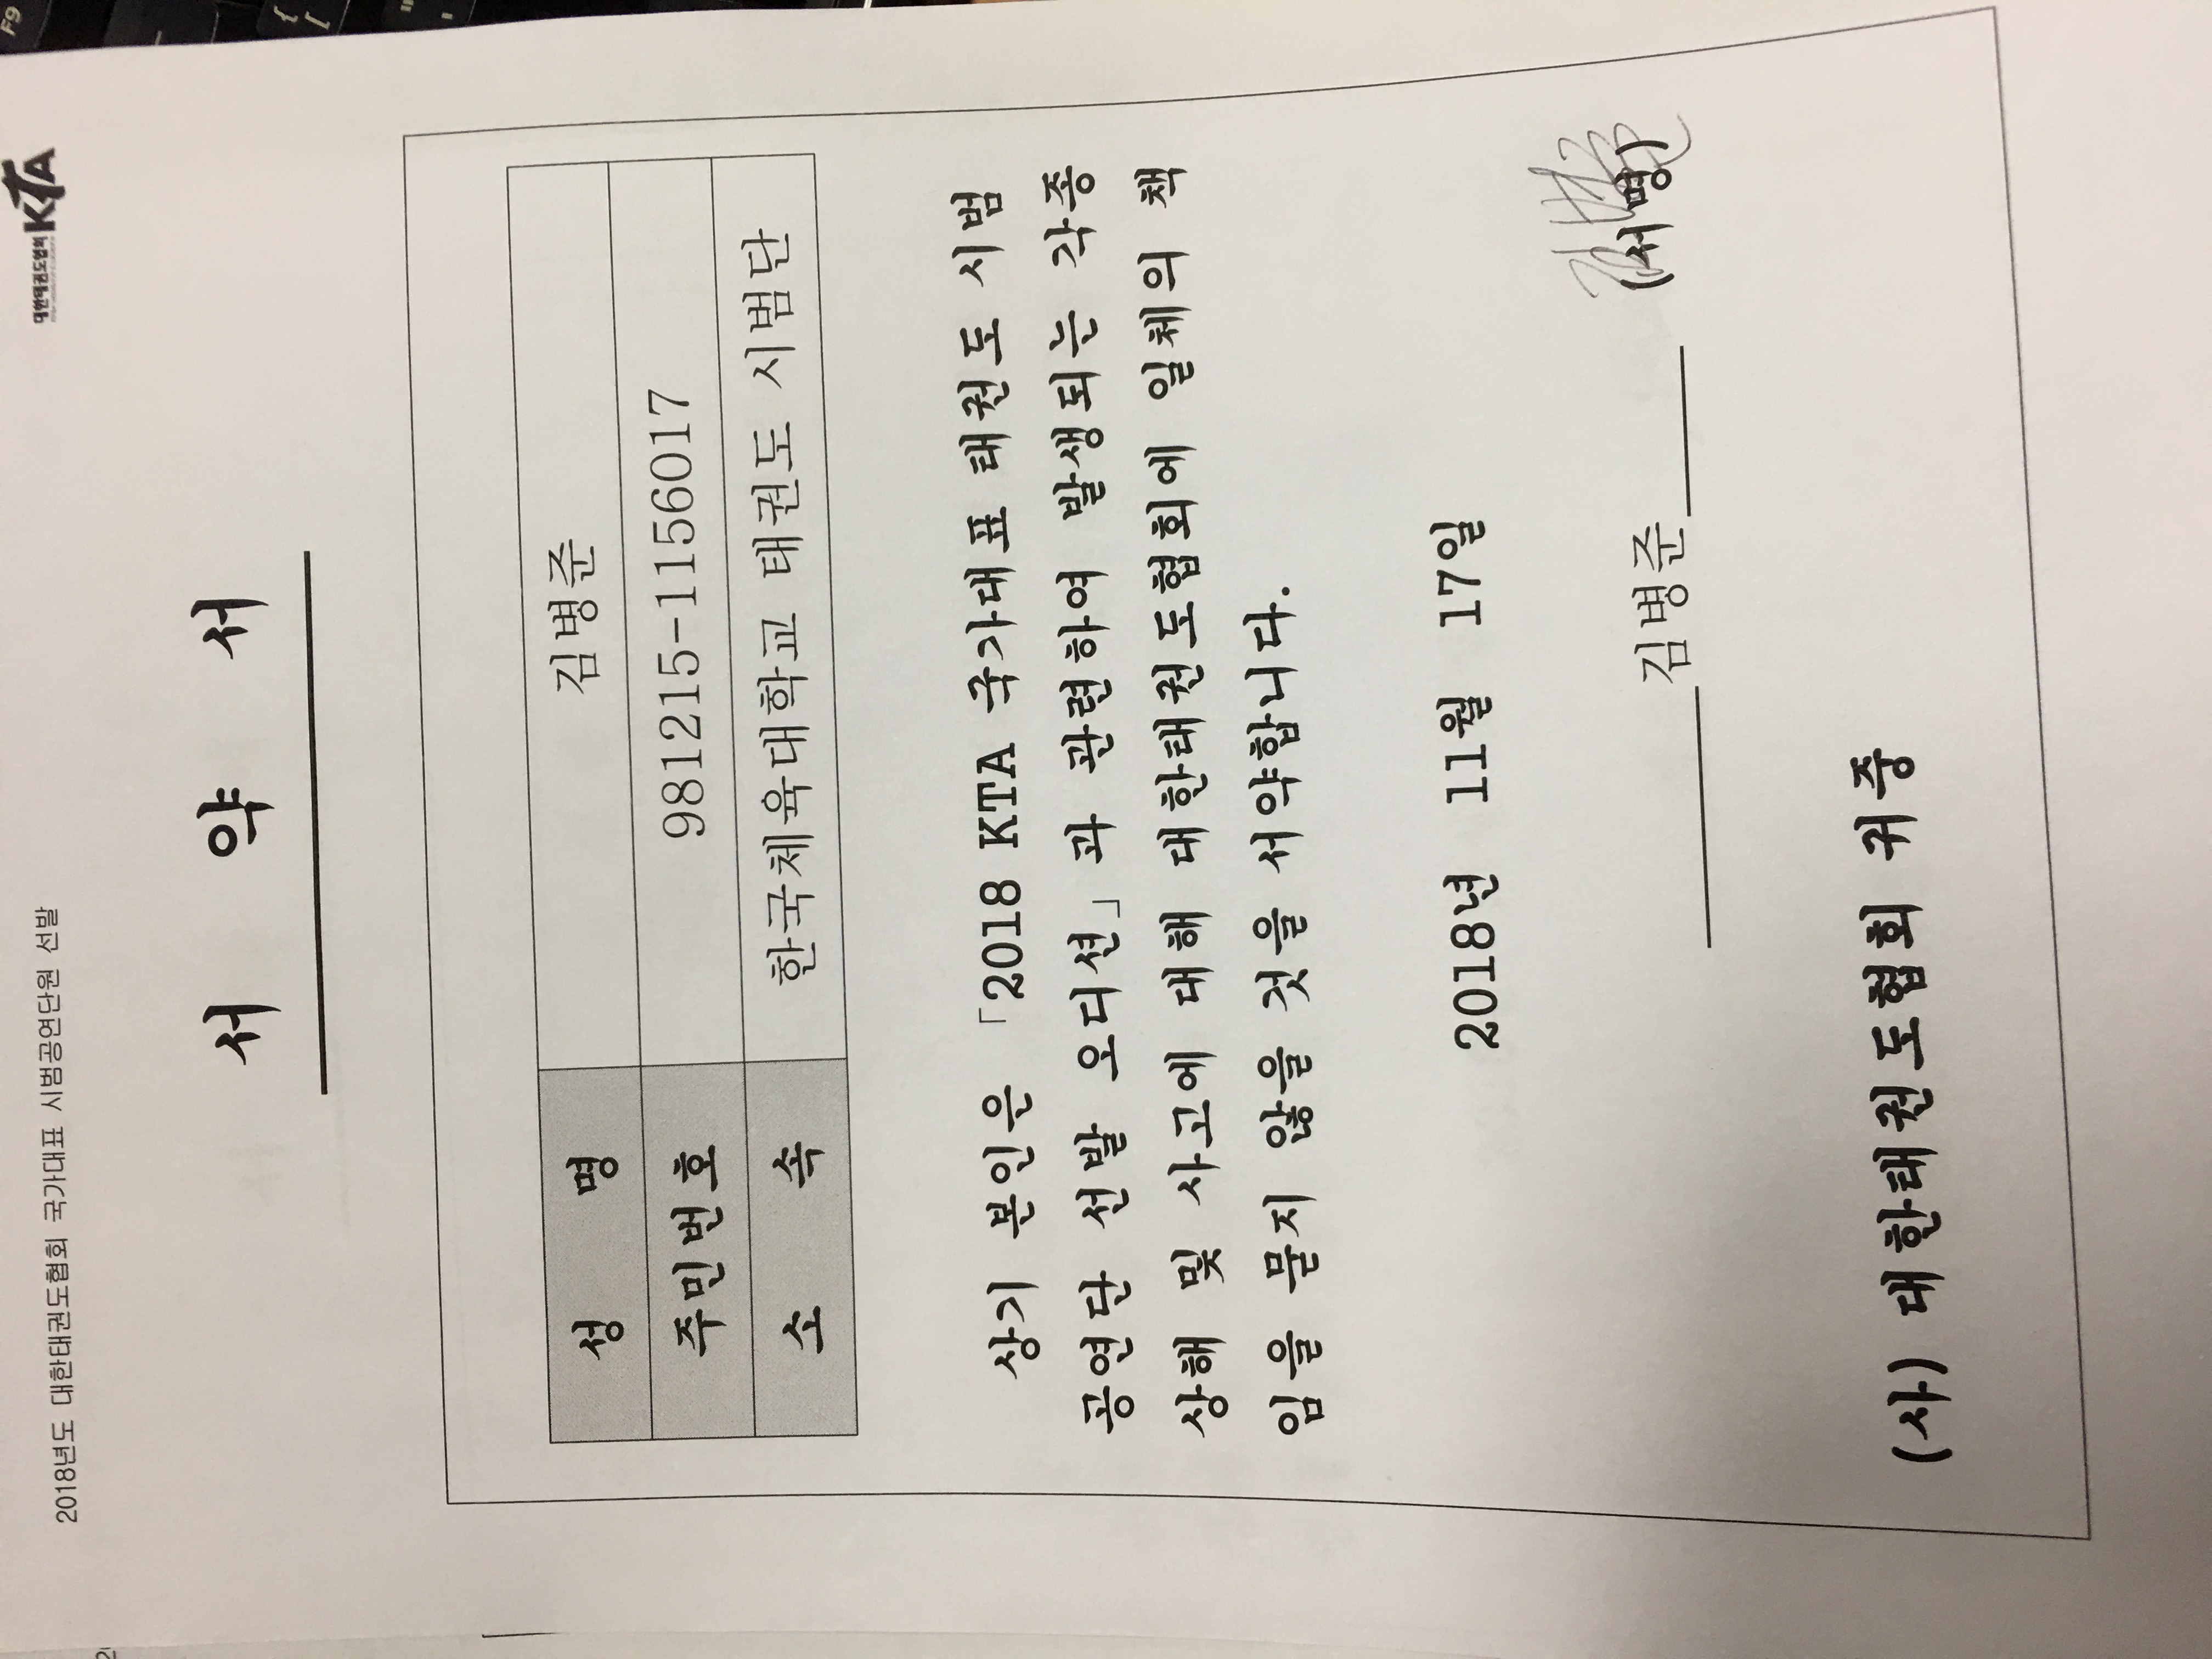 2018년도 대한태권도협회 국가대표 시범공연단원 선발
대한태권도협회 KTA
서 약 서
성 명 김병준
주민번호 981215-1156017
소 속 한국체육대학교 태권도 시범단
상기 본인은 「2018 KTA 국가대표 태권도 시범
공연단 선발 오디션」과 관련하여 발생되는 각종
상해 및 사고에 대해 대한태권도협회에 일체의 책
임을 묻지 않을 것을 서약합니다.
2018년 11월 17일
김병준 (서명)
(사) 대한태권도협회 귀중
F9